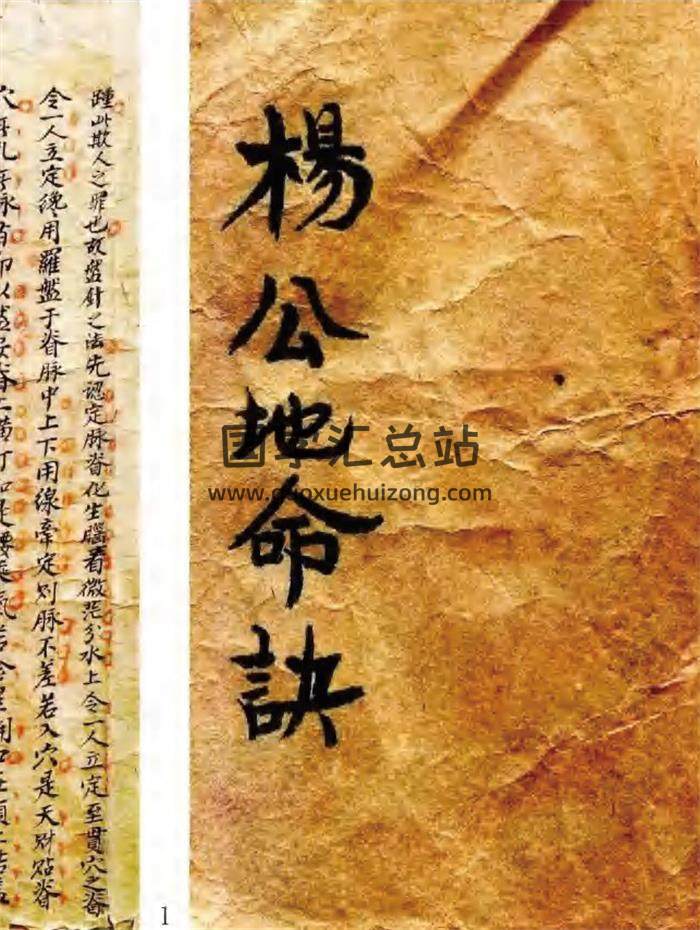 楊公地命訣
国学汇总站
www.guoxuehuizong.com
踵此欺人之罪也故盤針之法先認定脉脊化生腦看微茫分水上令一人立定至貫穴之脊
令一人立定纔用羅盤于脊脉中上下用線牽定則脉不差若入穴是天財貼脊
1